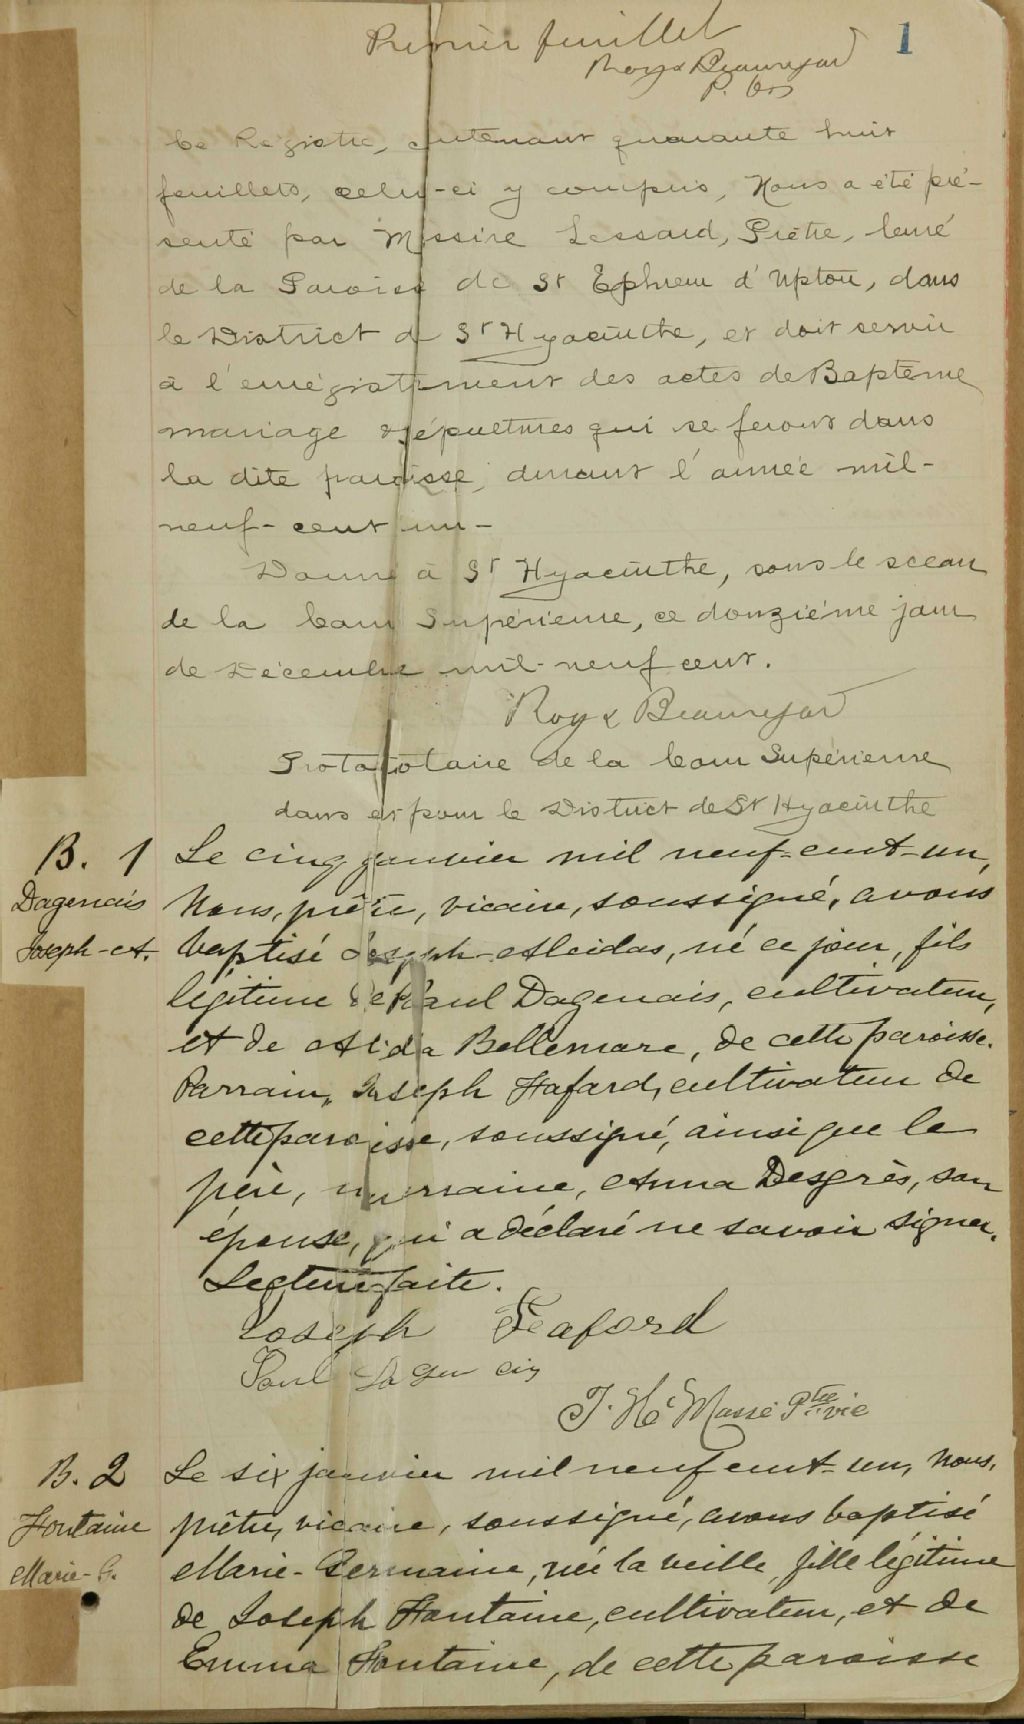 Premier feuillet
1
Roy & Beauregard
P. C. S.
Ce Registre, contenant quarante huit
feuillets, celui-ci y compris, Nous a été pré-
senté par Messire Lessard, Prêtre, Curé
de la Paroisse de St Ephrem d'Upton, dans
le District de St Hyacinthe, et doit servir
à l'enrégistrement des actes de Baptême
mariage & sépultures qui se feront dans
la dite paroisse, durant l'année mil-
neuf-cent un-
Donné à St Hyacinthe, sous le sceau
de la Cour Supérieure, ce douzième jour
de Décembre mil-neuf cent.
Roy & Beauregard
Protonotaire de la Cour Supérieure
dans et pour le District de St Hyacinthe
B. 1
Dagenais
Joseph-A.
Le cinq janvier mil neuf-cent-un,
Nous, prêtre, vicaire, soussigné, avons
baptisé Joseph-Alcidas, né ce jour, fils
légitime de Paul Dagenais, cultivateur,
et de Alida Bellemare, de cette paroisse.
Parrain, Joseph Hafard, cultivateur de
cette paroisse, soussigné, ainsi que le
père, marraine, Anna Desgrès, son
épouse, qui a déclaré ne savoir signer.
Lecture faite.
Joseph
Paul
J. H. Massé Ptre vic
B. 2
Fontaine
Marie-G.
Le six janvier mil neuf cent-un, Nous,
prêtre, vicaire, soussigné, avons baptisé
Marie-Germaine, née la veille, fille légitime
de Joseph Fontaine, cultivateur, et de
Emma Fontaine, de cette paroisse